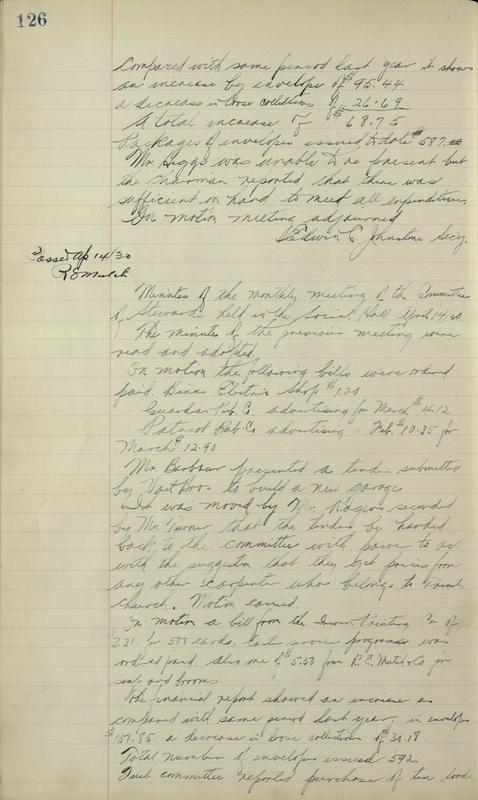 126
Compared with same period last year it shows
an increase by envelope of $95.44
a decrease in loose collections of 26.69
A total increase of $68.75
Packages of envelopes issued to date 587
Mr. Higgs was unable to be present but
the chairman reported that there was
sufficient on hand to meet all expenditures.
On motion meeting adjourned
Edwin C. Johnston Secy.
Passed Ap 14/30
R E Mutch
Minutes of the monthly meeting of the Committee
of Stewards held in the Social Hall April 14 30
The minutes of the previous meeting were
read and adopted.
On motion the following bills were ordered
paid. Binns Electric Shop $1.20
Guardian Pub. Co. advertising for March $4.12
Patriot Pub. Co advertising Feb. $10.35 for
March $12.90
Mr. Barbour presented a tender submitted
by Vait Bros to build a new garage
It was moved by Mr. Rogers, seconded
by Mr. Turner that the tender be handed
back to the committee with power to act
with the suggestion that they get prices from
any other carpenter who belongs to Trinity
church. Motion carried.
On motion a bill from the Irwin Printing Co. of
3.31 for 500 cards, Easter service programmes was
ordered paid. Also one of $5.50 from R.E. Mutch &Co for
soap and brooms.
The financial report showed an increase as
compared with same period last year, in envelopes
$157.85 a decrease in loose collection of $30.18.
Total number of envelopes issued 592.
Fuel committee reported purchase of ten loads